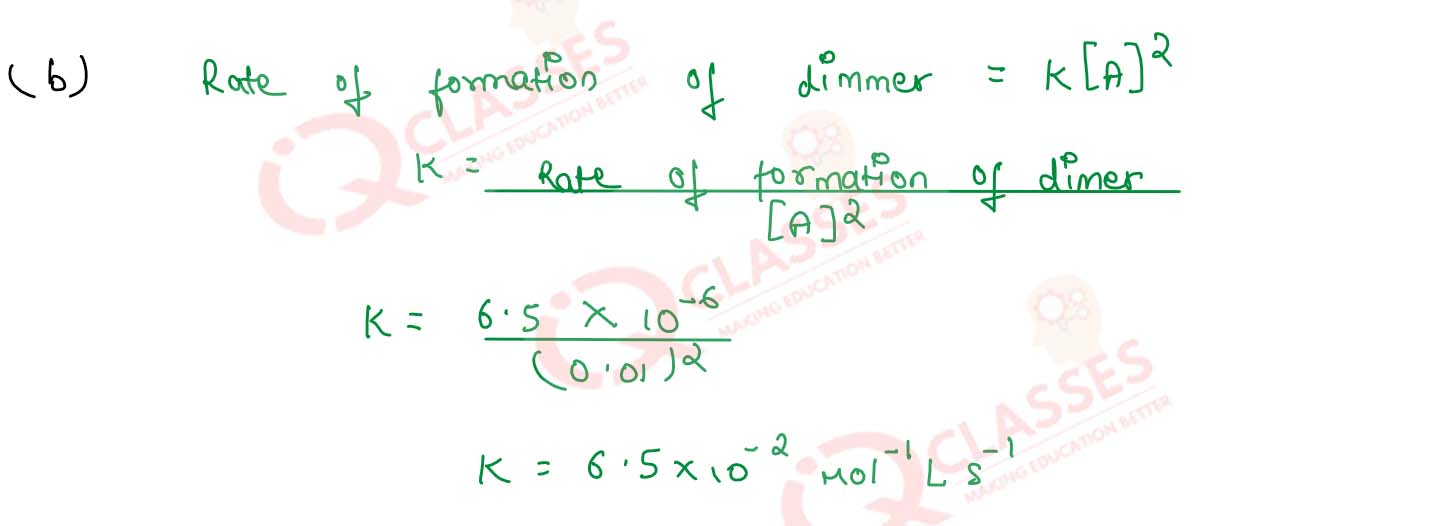 (b) Rate of formation of dimmer = K[A]²
K = Rate of formation of dimer
[A]²
K = 6.5 × 10⁻⁶
(0.01)²
K = 6.5×10⁻² Mol⁻¹ L S⁻¹
IQ CLASSES
MAKING EDUCATION BETTER
IQ CLASSES
MAKING EDUCATION BETTER
IQ CLASSES
MAKING EDUCATION BETTER